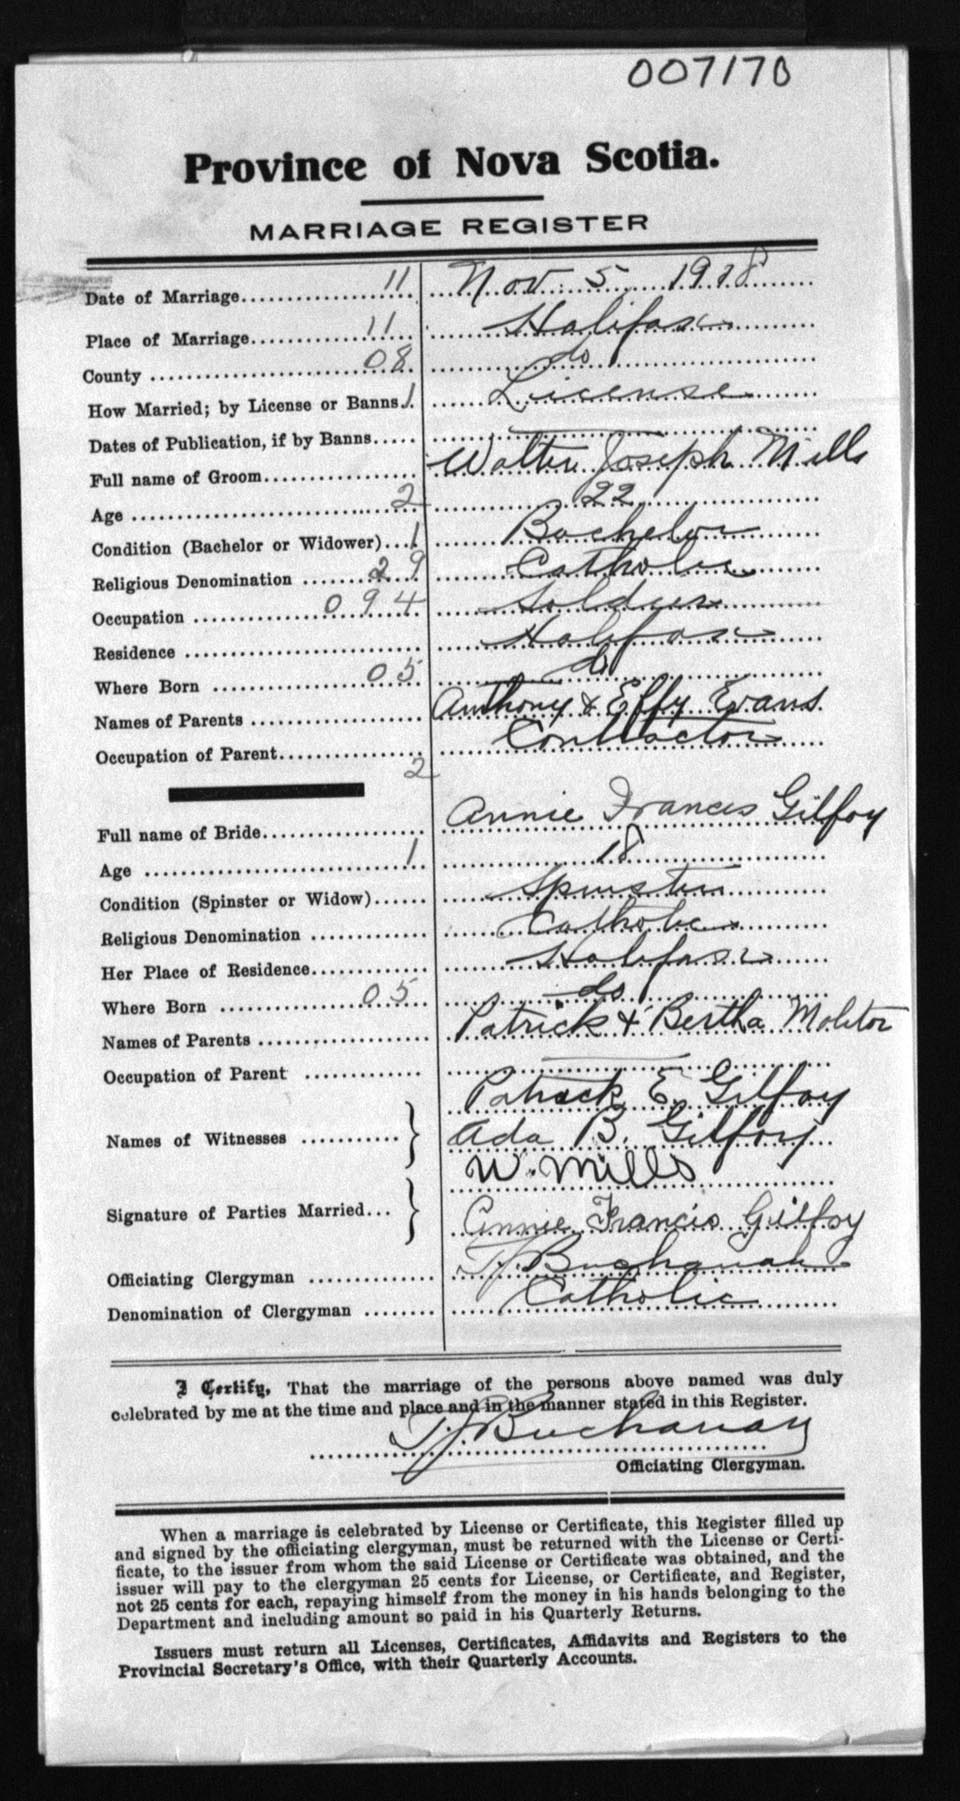 007170
Province of Nova Scotia.
MARRIAGE REGISTER
Date of Marriage 11 Nov 5 1918
Place of Marriage 11 Halifax
County 08 do
How Married; by License or Banns 1 License
Dates of Publication, if by Banns
Full name of Groom Walter Joseph Mills
Age 2 22
Condition (Bachelor or Widower) 1 Bachelor
Religious Denomination 29 Catholic
Occupation 094 Soldier
Residence Halifax
Where Born 05 do
Names of Parents Anthony & Effy Evans
Occupation of Parent Contractor
2
Full name of Bride Annie Francis Gilfoy
Age 1 18
Condition (Spinster or Widow) Spinster
Religious Denomination Catholic
Her Place of Residence Halifax
Where Born 05 do
Names of Parents Patrick & Bertha Molitor
Occupation of Parent
Patrick E. Gilfoy
Names of Witnesses Ada B. Gilfoy
W. Mills
Signature of Parties Married Annie Francis Gilfoy
Officiating Clergyman T. J. Buchanan
Denomination of Clergyman Catholic
I Certify, That the marriage of the persons above named was duly
celebrated by me at the time and place and in the manner stated in this Register.
T. J. Buchanan
Officiating Clergyman.
When a marriage is celebrated by License or Certificate, this Register filled up
and signed by the officiating clergyman, must be returned with the License or Certi-
ficate, to the issuer from whom the said License or Certificate was obtained, and the
issuer will pay to the clergyman 25 cents for License, or Certificate, and Register,
not 25 cents for each, repaying himself from the money in his hands belonging to the
Department and including amount so paid in his Quarterly Returns.
Issuers must return all Licenses, Certificates, Affidavits and Registers to the
Provincial Secretary's Office, with their Quarterly Accounts.